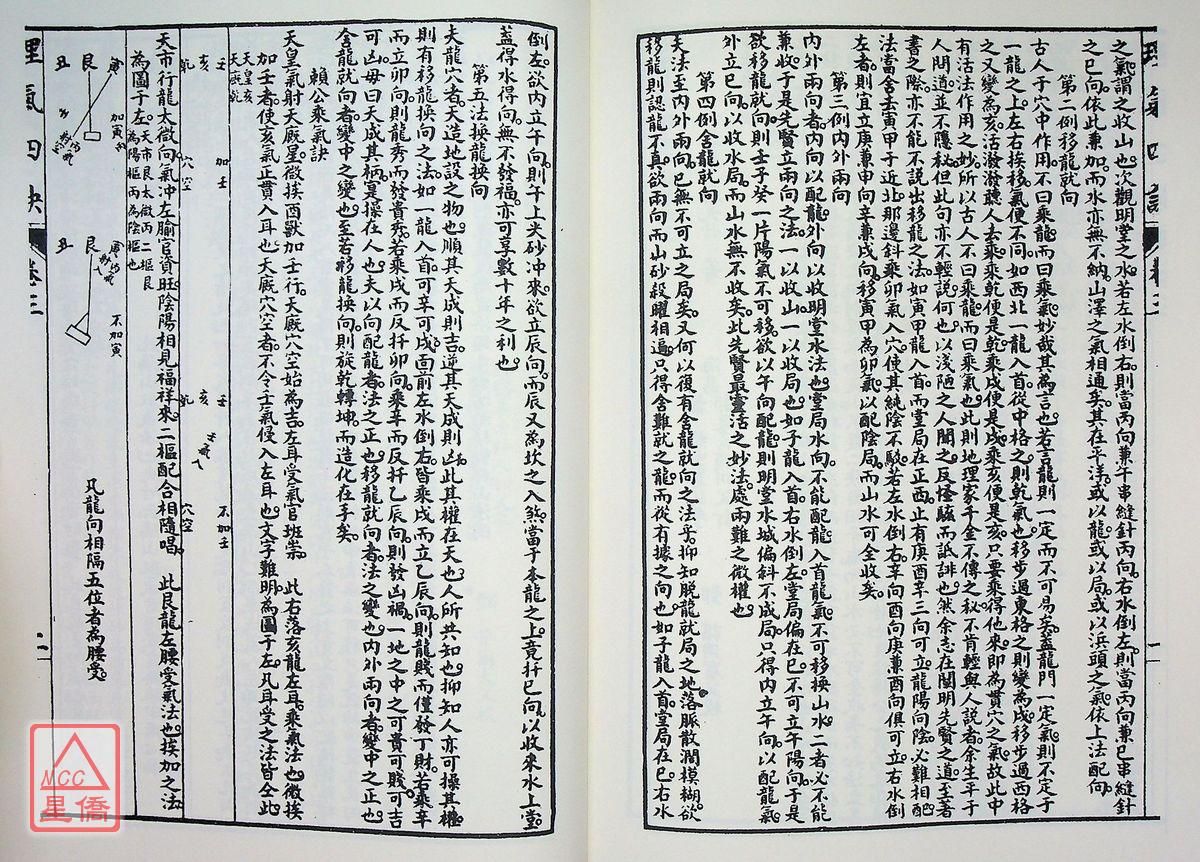 之氣謂之收山也次觀明堂之水若左水倒右則當丙向兼午串縫針丙向右水倒左則當丙向兼巳串縫針
之巳向依此兼加而水亦無不納山澤之氣相通矣其在平洋或以龍或以局或以浜頭之氣依上法配向
第二例移龍就向
古人于穴中作用不曰乘龍而曰乘氣妙哉其為言也若言龍則一定而不可易矣蓋龍門一定氣則不定于
一龍之上左右挨移氣便不同如西北一龍入首從中格之則乾氣也移步過東格之則變為戌移步過西格
之又變為亥活潑潑聽人去乘乘乾便是乾乘戌便是戌乘亥便是亥只要乘得他來即為貫穴之氣故此中
有活法作用之妙所以古人不曰乘龍而曰乘氣也此則地理家千金不傳之秘不肯輕與人說者余生平于
人間道並不隱秘但此句亦不輕說何也以淺陋之人聞之反怪駭而詆誹也然余志在闡明先賢之道至著
書之際亦不能不說出移龍之法如寅甲龍入首而堂局在正西止有庚酉辛三向可立龍陽向陰必難相配
法當舍去寅甲于近北那邊斜乘卯氣入穴使其純陰不駁若左水倒右辛向酉向庚兼酉向俱可立右水倒
左者則宜立庚兼申向辛兼戌向移寅甲為卯氣以配陰局而山水可全收矣
第三例內外兩向
內外兩向者內向以配龍外向以收明堂水法也堂局水向不能配龍入首龍氣不可移換山水二者必不能
兼收于是先賢立兩向之法一以收山一以收局也如子龍入首右水倒左堂局偏在巳不可立午陽向于是
欲移龍就向則壬子癸一片陽氣不可移欲以午向配龍則明堂水城偏斜不成局只得內立午向以配龍氣
外立巳向以收水局而山水無不收矣此先賢最靈活之妙法處兩難之微權也
第四例舍龍就向
夫法至內外兩向已無不可立之局矣又何以復有舍龍就向之法乎抑知脫龍就局之地落脈散濶模糊欲
移龍則認龍不真欲兩向而山砂殺曜相逼只得舍難就之龍而從有據之向也如子龍入首堂局在巳右水
倒左欲內立午向則午上尖砂冲來欲立辰向而辰又為坎之入煞當于本龍之上竟扦巳向以收來水上堂
蓋得水得向無不發福亦可享數十年之利也
第五法換龍換向
夫龍穴者天造地設之物也順其天成則吉逆其天成則凶此其權在天也人所共知也抑知人亦可操其權
則有移龍換向之法如一龍入首可辛可戌面前左水倒右皆乘戌而立乙辰向則龍賤而僅發丁財若乘辛
而立卯向則龍秀而發貴秀若乘戌而反扦卯向乘辛而反扦乙辰向則發出禍一地之中之可貴可賤可吉
可凶毋曰天成其柄寔操在人也夫以向配龍者法之正也移龍就向者法之變也內外兩向者變中之正也
舍龍就向者變中之變也至若移龍換向則旋乾轉坤而造化在手矣
賴公乘氣訣
天皇氣射天廐星微挨酉獸加壬行天廐穴空始為吉左耳受氣官班崇 此右落亥龍左耳乘氣法也微挨
加壬者使亥氣正貫入耳也天廐穴空者不令壬氣侵入左耳也文字難明為圖于左凡耳受之法皆仝此
天皇亥
天廐乾
壬
亥
乾
加壬
穴空
壬
亥
乾
壬氣入
不加壬
穴空
天市行龍太微向氣冲左腧官資旺陰陽相見福祥來二樞配合相隨唱 此艮龍左腰受氣法也挨加之法
為圖于左天市艮太微丙二樞艮
為陽樞丙為陰樞也
寅
艮
丑
加寅
艮
丑
不加寅
凡龍向相隔五位者為腰受
理氣四訣
卷三
一
二
NCC
星僑